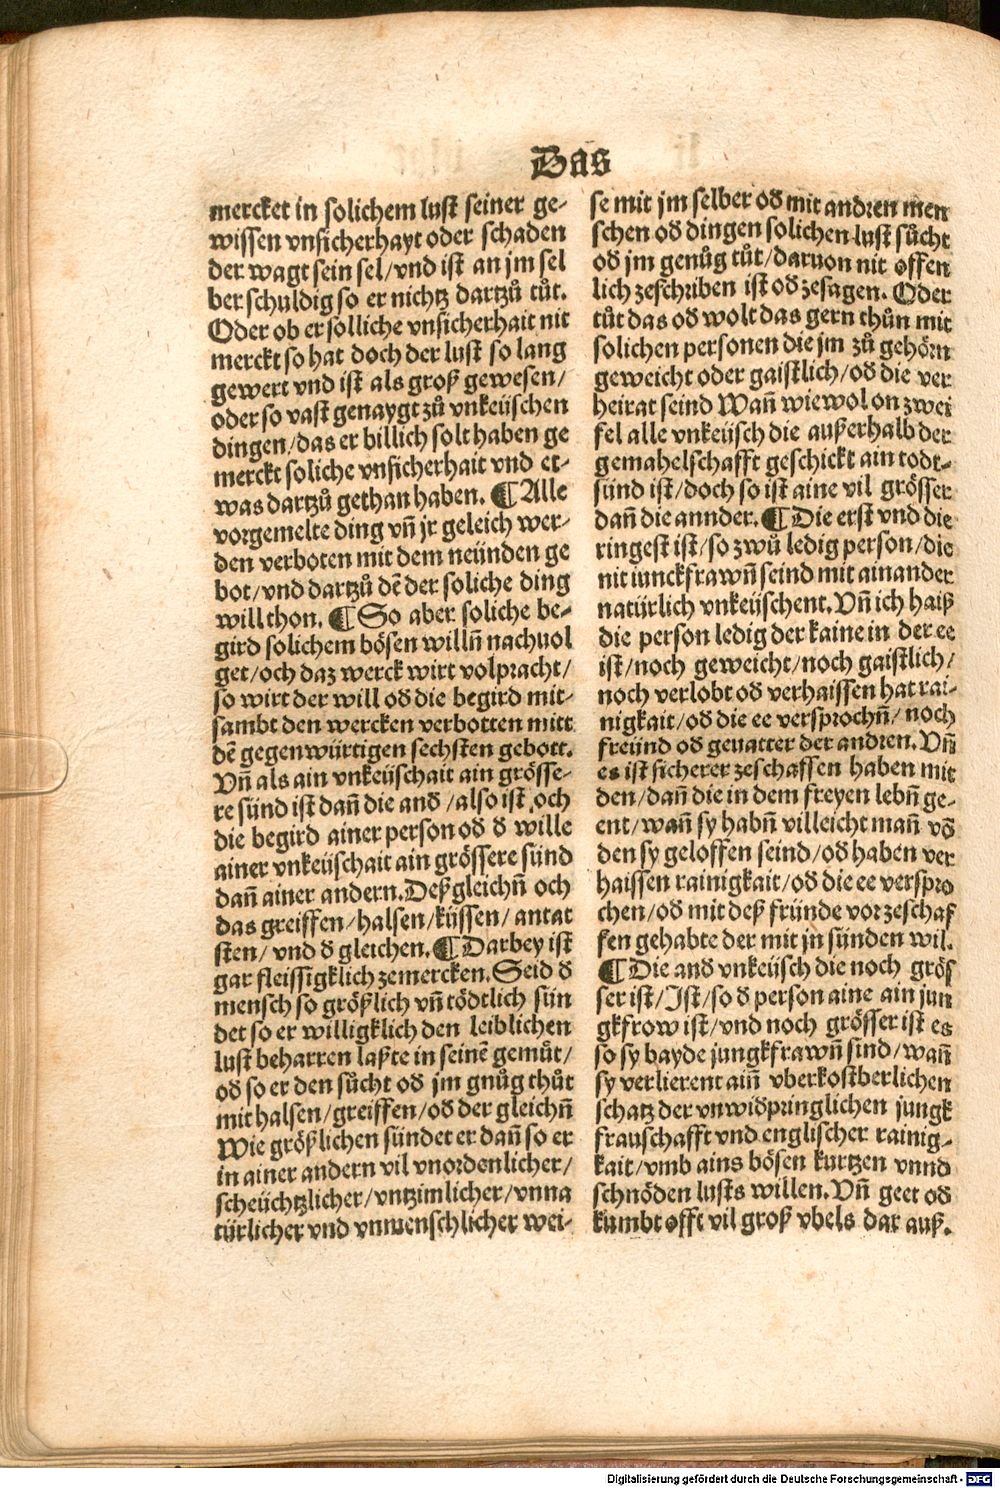 Das
mercket in solichem lust seiner ge-
wissen vnsicherhayt oder schaden
der wagt sein sel/vnd ist an jm sel
ber schuldig so er nichtz dartzů tůt.
Oder ob er solliche vnsicherhait nit
merckt so hat doch der lust so lang
gewert vnd ist als groß gewesen/
oder so vast genaygt zů vnkeüschen
dingen/das er billich solt haben ge
merckt soliche vnsicherhait vnd et-
was dartzů gethan haben. ¶ Alle
vorgemelte ding vn̄ jr geleich wer-
den verboten mit dem neünden ge
bot/vnd dartzů dē der soliche ding
will thon. ¶ So aber soliche be-
gird solichem bösen willn̄ nachuol
get/och daz werck wirt volpracht/
so wirt der will oď die begird mit-
sambt den wercken verbotten mitt
dē gegenwürtigen sechsten gebott.
Vn̄ als ain vnkeüschait ain grösse-
re sünd ist dan̄ die anď/also ist och
die begird ainer person oď ď wille
ainer vnkeüschait ain grössere sünd
dan̄ ainer andern. Deßgleichn̄ och
das greiffen/halsen/küssen/antat
sten/vnd ď gleichen. ¶ Darbey ist
gar fleissigklich zemercken. Seid ď
mensch so größlich vn̄ tödtlich sün
det so er willigklich den leiblichen
lust beharren laßte in seinē gemůt/
oď so er den sůcht oď jm gnůg thůt
mit halsen/greiffen/oď der gleichn̄
Wie größlichen sündet er dan̄ so er
in ainer andern vil vnordenlicher/
scheüchtzlicher/vntzimlicher/vnna
türlicher vnd vnmenschlicher wei-
se mit jm selber oď mit andren men
schen oď dingen solichen lust sůcht
oď jm genůg tůt/daruon nit offen
lich zeschriben ist oď zesagen. Oder
tůt das oď wolt das gern thůn mit
solichen personen die jm zů gehörn
geweicht oder gaistlich/oď die ver
heirat seind Wan̄ wiewol on zwei
fel alle vnkeüsch die außerhalb der
gemahelschafft geschickt ain todt-
sünd ist/doch so ist aine vil grösser
dan̄ die annder. ¶ Die erst vnd die
ringest ist/so zwů ledig person/die
nit iunckfrawn̄ seind mit ainander
natürlich vnkeüschent. Vn̄ ich haiß
die person ledig der kaine in der ee
ist/noch geweicht/noch gaistlich/
noch verlobt oď verhaissen hat rai-
nigkait/oď die ee versprochn̄/noch
freünd oď geuatter der andren. Vn̄
es ist sicherer zeschaffen haben mit
den/dan̄ die in dem freyen lebn̄ ge-
ent/wan̄ sy habn̄ villeicht man̄ vō
den sy geloffen seind/oď haben ver
haissen rainigkait/oď die ee verspro
chen/oď mit deß fründe vor zeschaf
fen gehabt der mit jn sünden wil.
¶ Die anď vnkeüsch die noch grös
ser ist/Ist/so ď person aine ain jun
gkfrow ist/vnd noch grösser ist es
so sy bayde jungkfrawn̄ sind/wan̄
sy verlierent ain̄ vberkostberlichen
schatz der vnwidpringlichen jungk
frauschafft vnd englischer rainig-
kait/vmb ains bösen kurtzen vnnd
schnöden lusts willen. Vn̄ geet oď
kumbt offt vil groß vbels dar auß.
Digitalisierung gefördert durch die Deutsche Forschungsgemeinschaft - DFG